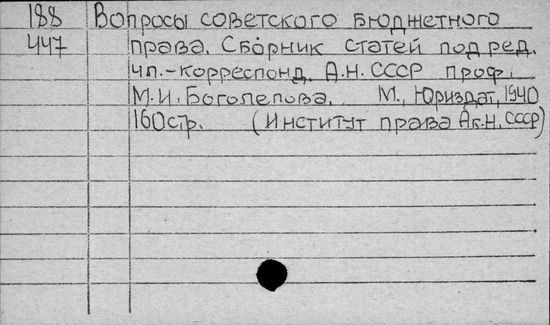 188 Вопросы советского бюджетного
447 права. Сборник статей под ред.
чл.-корреспонд. А.Н. СССР проф.
М.И. Боголепова. М., Юриздат, 1940
160стр. (Институт права Ак.Н. СССР)